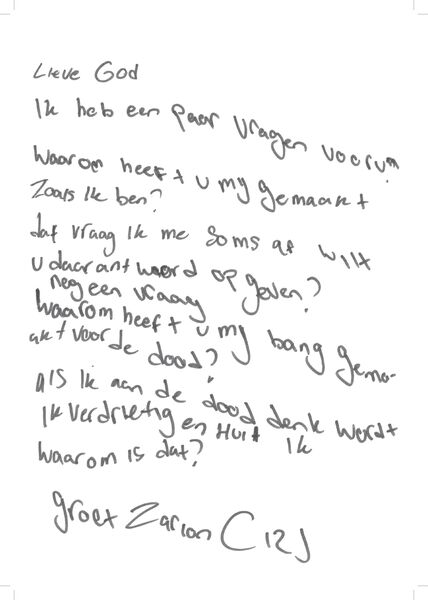 Lieve God
Ik heb een paar vragen voor u
Waarom heeft u my gemaakt
Zoals ik ben?
dat vraag ik me soms af wilt
u daar antwoord op geven?
nog een vraag
waarom heeft u my bang gema-
akt voor de dood?
als ik aan de dood denk wordt
ik verdrietig en Huil ik
waarom is dat?
groet Zarion (12J